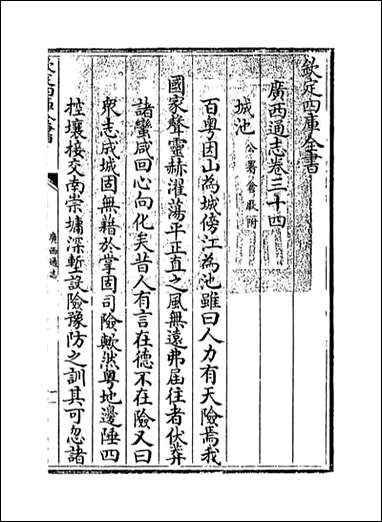 欽定四庫全書
廣西通志卷三十四
城池 公署倉厫附
百粤因山為城傍江為池雖曰人力有天險焉我
國家聲靈赫濯蕩平正直之風無遠弗届往者伏莽
諸蠻咸回心向化矣昔人有言在德不在險又曰
衆志成城固無藉於掌固司險歟然粤地邊陲四
控壤接交南崇墉深塹設險豫防之訓其可忽諸
欽定四庫全書
廣西通志
一